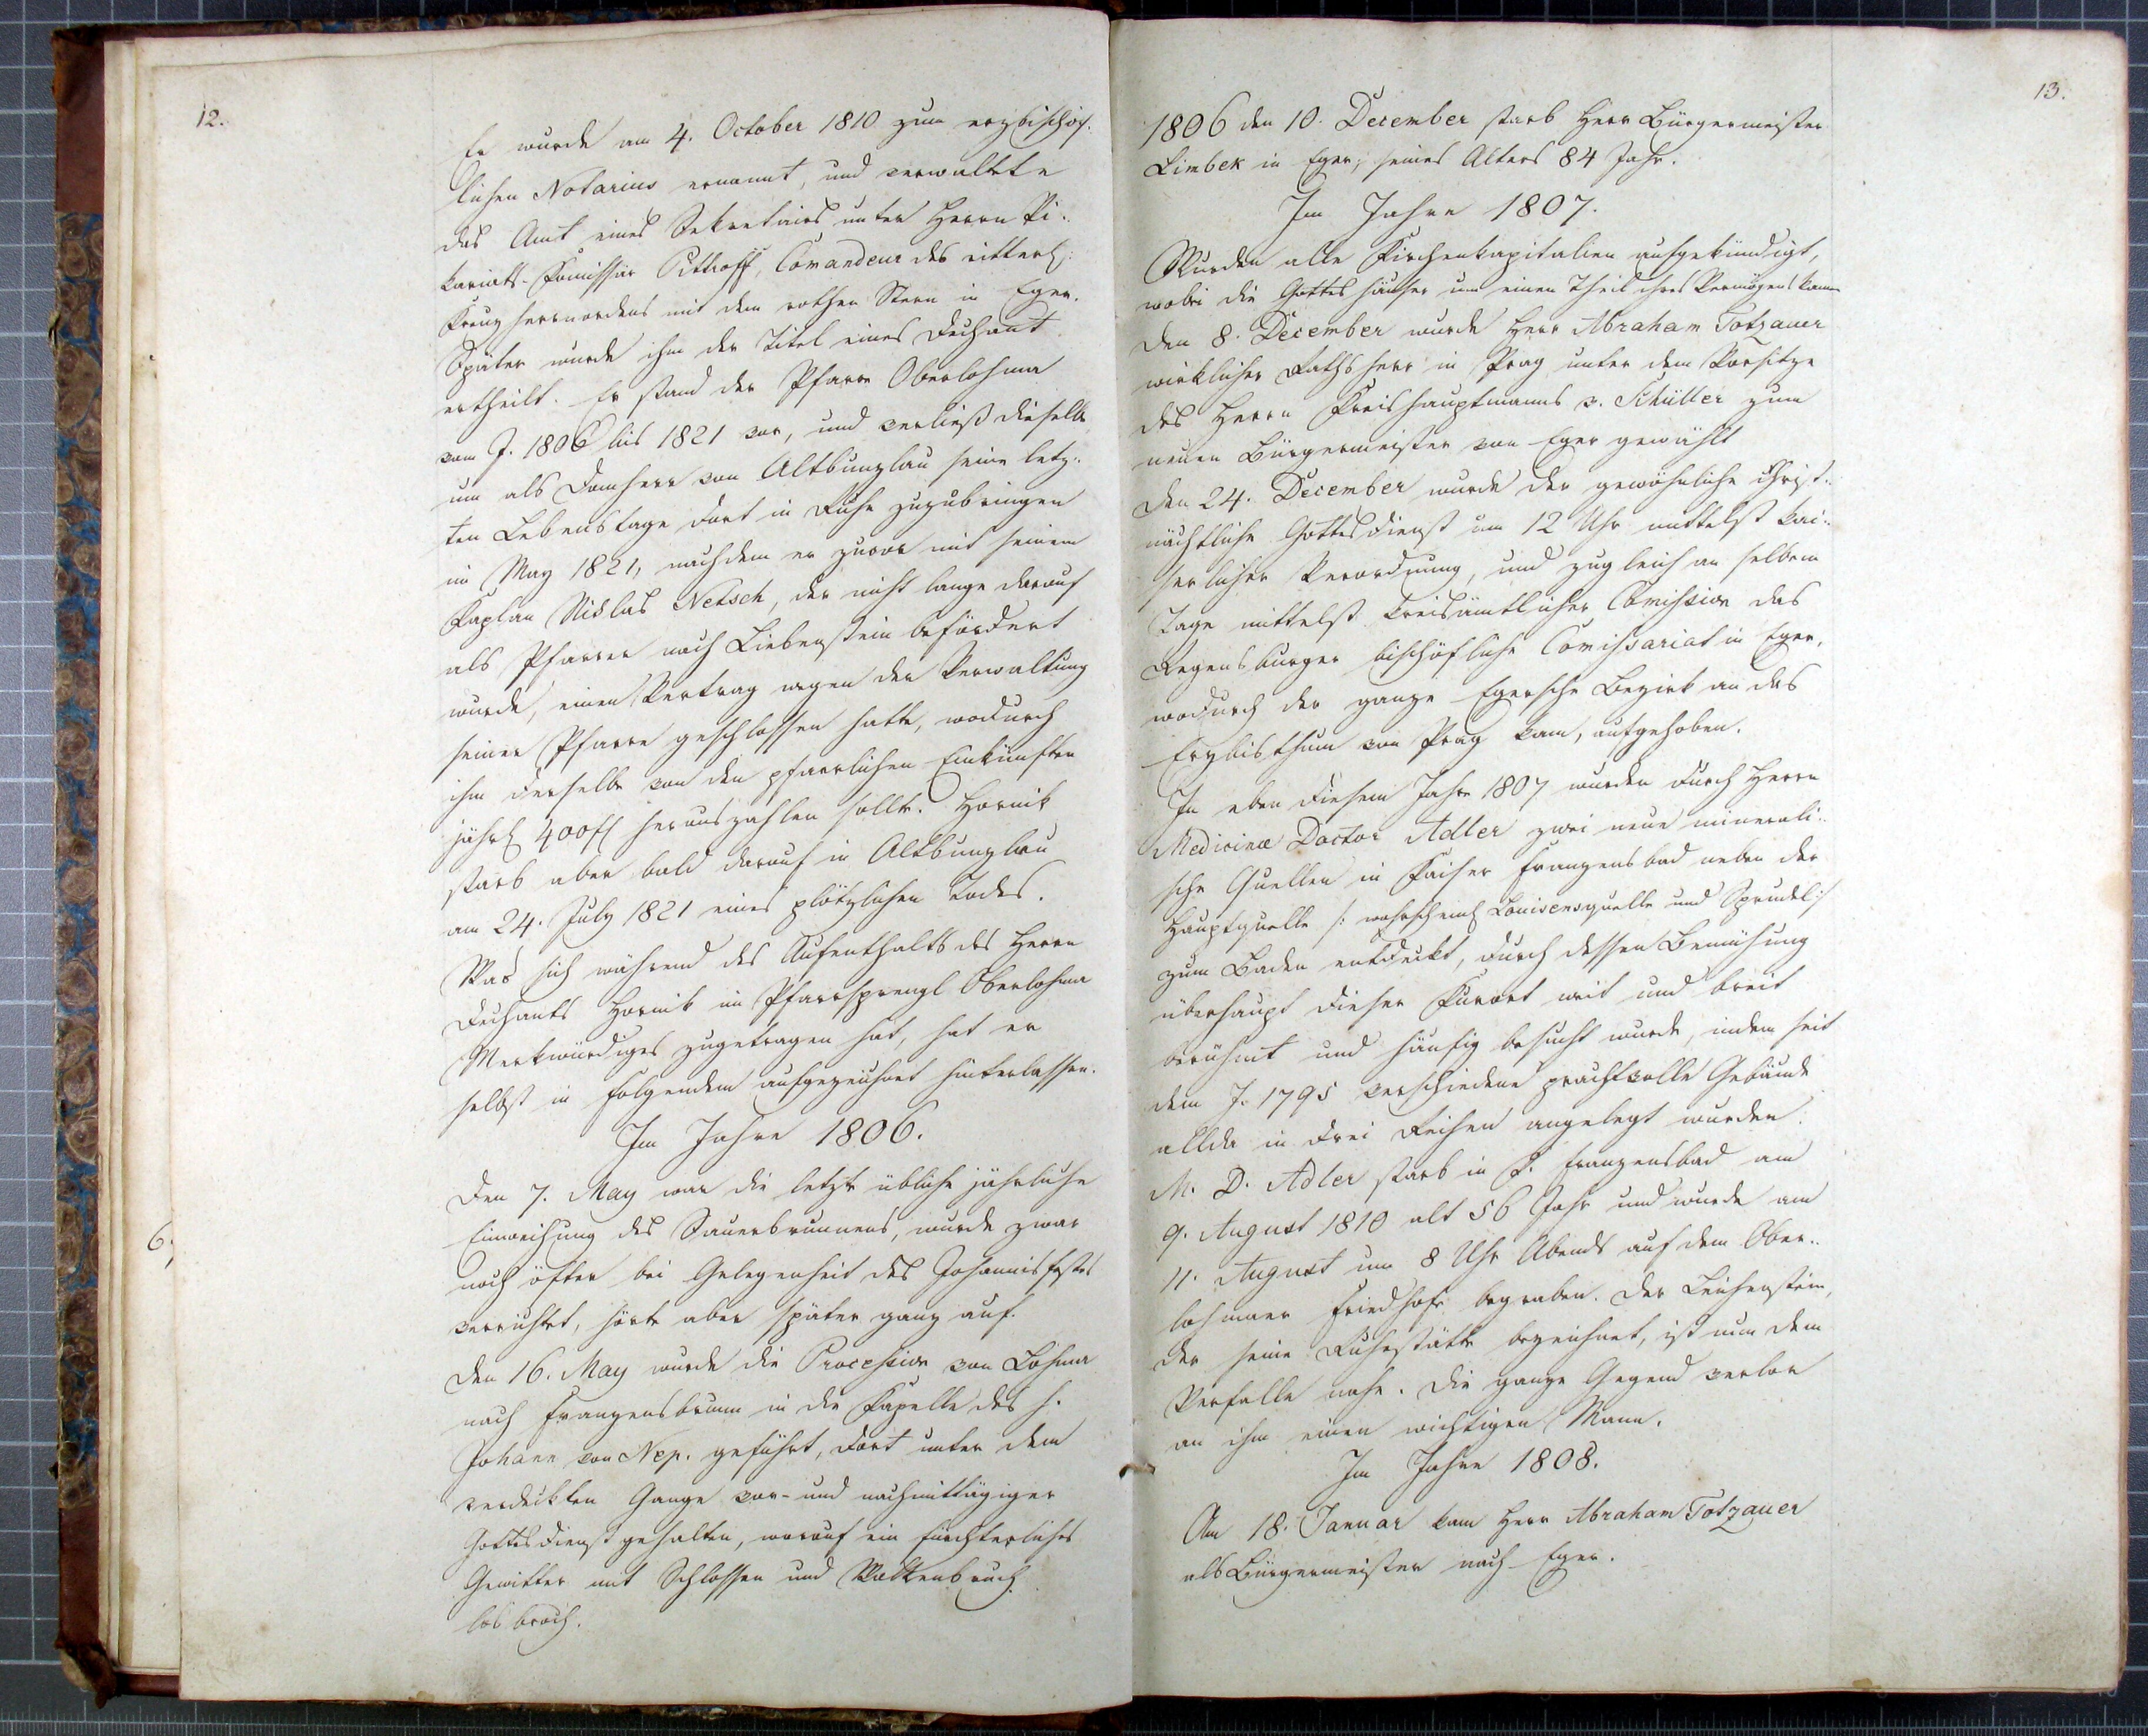 12.
Er wurde am 4. October 1810 zum erzbischöf-
lichen Notarius ernannt, und verwaltete
das Amt eines Sekretairs unter Herrn Vi-
kariats-Komissär Pittroff, Comandeur des ritterl:
Kreuzherrnordens mit dem rothen Stern in Eger.
Später wurde ihm der Titel eines Dechant
ertheilt. Er stand der Pfarre Oberlohma
vom J. 1806 bis 1821 vor, und verließ dieselbe,
um als Domherr von Altbunzlau seine letz-
ten Lebenstage dort in Ruhe zuzubringen
im May 1821, nachdem er zuvor mit seinem
Kaplan Niklas Netsch, der nicht lange darauf
als Pfarrer nach Liebenstein befördert
wurde, einen Vertrag wegen der Verwaltung
seiner Pfarre geschlossen hatte, wodurch
ihm derselbe von den pfarrlichen Einkünften
jährl 400 fl herauszahlen sollte. Hornik
starb aber bald darauf in Altbunzlau
am 24. July 1821 eines plötzlichen Todes.
Was sich während des Aufenthalts des Herrn
Dechants Hornik im Pfarrsprengl Oberlohma
Merkwürdiges zugetragen hat, hat er
selbst in folgendem aufgezeichnet hinterlassen.
Im Jahre 1806.
Den 7. May war die letzte übliche jährliche
Einweihung des Sauerbrunnens, wurde zwar
6.
noch öfter bei Gelegenheit des Johannisfestes
verrichtet, hörte aber später ganz auf.
Den 16. May wurde die Procession von Lohma
nach Franzensbrunn in die Kapelle des h.
Johann von Nep. geführt, dort unter dem
verdeckten Gange vor- und nachmittägiger
Gottesdienst gehalten, worauf ein fürchterliches
Gewitter mit Schlossen und Wolkenbruch
los brach.
13.
1806 den 10. December starb Herr Bürgermeister
Limbek in Eger, seines Alters 84 Jahr.
Im Jahre 1807.
Wurden alle Kirchenkapitalien aufgekündigt,
wobei die Gotteshäuser um einen Theil ihres Vermögens kamen
Den 8. December wurde Herr Abraham Totzauer
wirklicher Rathsherr in Prag unter dem Vorsitze
des Herrn Kreishauptmanns v. Schüller zum
neuen Bürgermeister von Eger gewählt
Den 24. December wurde der gewöhnliche Christ-
nächtliche Gottesdienst um 12 Uhr mittelst kai-
serlicher Verordnung, und zugleich an selbem
Tage mittelst kreisämtlicher Comission das
Regensburger bischöfliche Comissariat in Eger,
wodurch der ganze Egersche Bezirk an das
Erzbisthum von Prag kam, aufgehoben.
In eben diesem Jahre 1807 wurden durch Herrn
Medicinæ Doctor Adler zwei neue minerali-
sche Quellen in Kaiser Franzensbad neben der
Hauptquelle /: wahrscheinl Louisensquelle und Sprudl :/
zum Baden entdeckt, durch dessen Bemühung
überhaupt dieser Kurort weit und breit
berühmt und häufig besucht wurde, indem seit
dem J. 1795 verschiedene prachtvolle Gebäude
allda in drei Reihen angelegt wurden.
M. D. Adler starb in K. Franzensbad am
9. August 1810 alt 56 Jahr und wurde am
11. August um 8 Uhr Abends auf dem Ober-
lohmaer Friedhofe begraben. Der Leichenstein,
der seine Ruhestätte bezeichnet, ist nun dem
Verfalle nahe. Die ganze Gegend verlor
an ihm einen wichtigen Mann.
Im Jahre 1808.
Am 18. Januar kam Herr Abraham Totzauer
als Bürgermeister nach Eger.